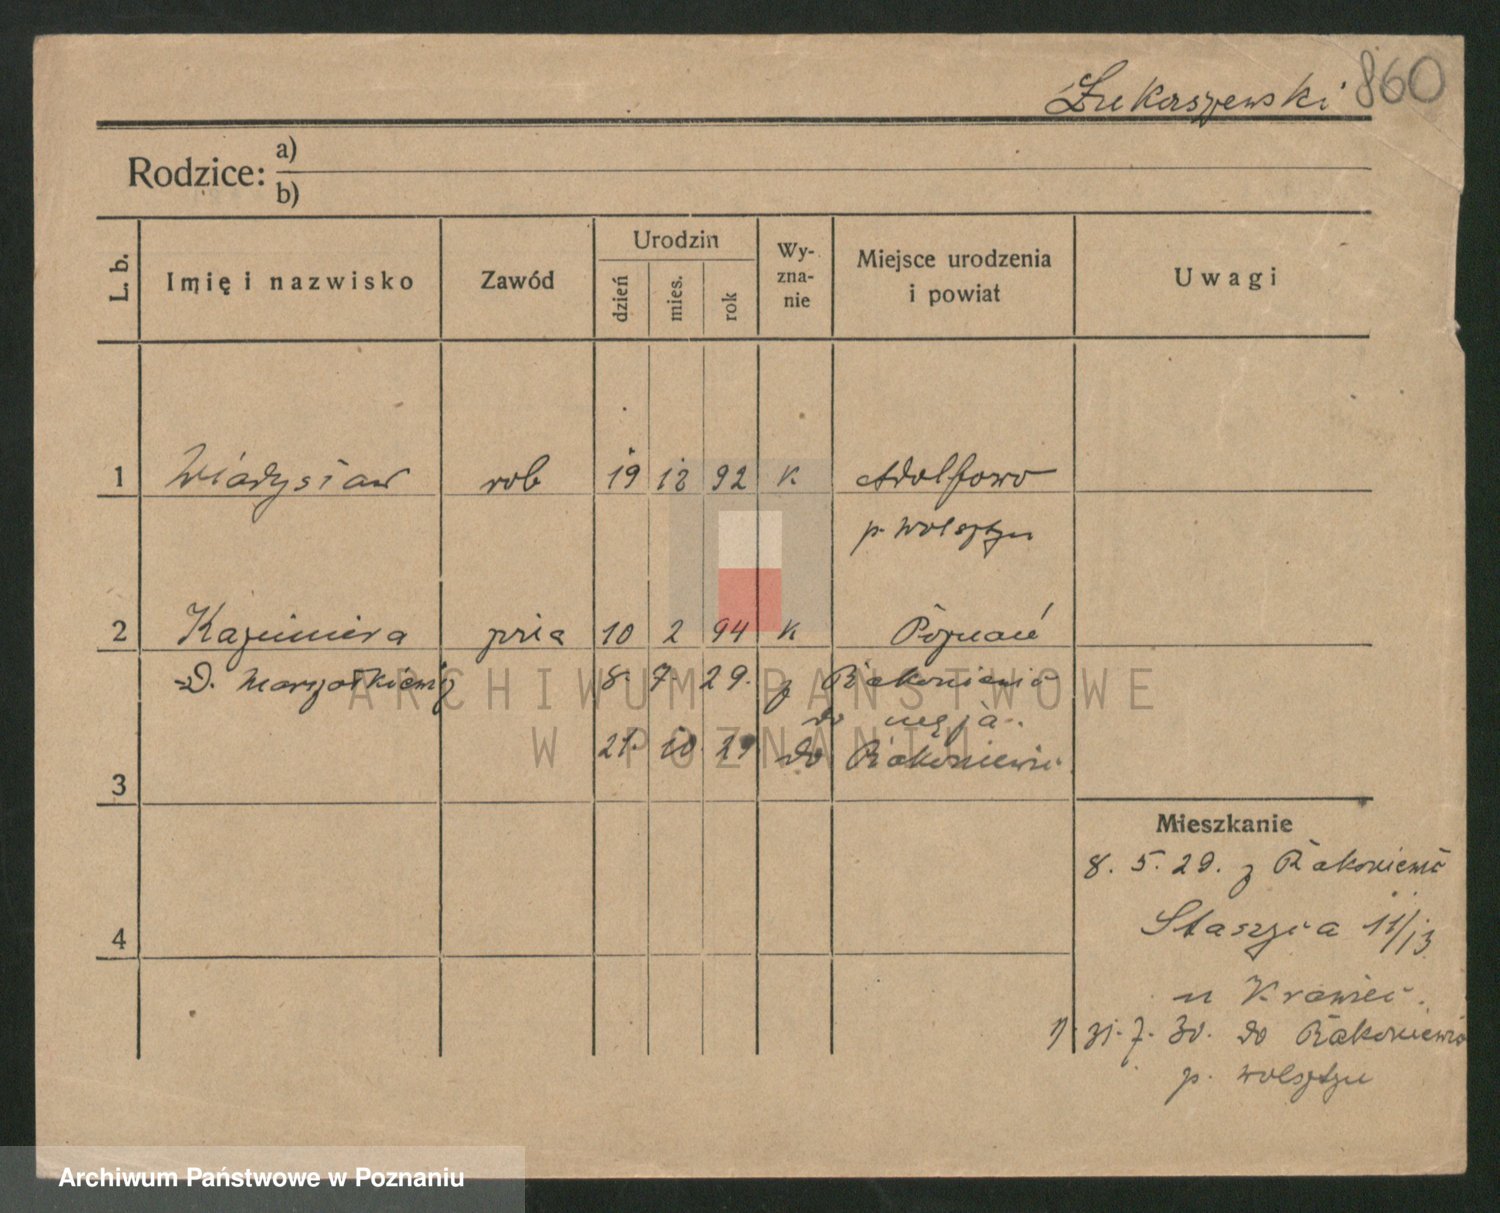 Łukaszewski 860
Rodzice: a)
b)
L. b. Imię i nazwisko Zawód Urodzin dzień mies. rok Wy-zna-nie Miejsce urodzenia i powiat Uwagi
1 Władysław rob 19 12 92 K Adolfowo
p. Wolsztyn
2 Kazimiera pria 10 2 94 K Poznań
z D. Marszałkiewicz 8. 7. 29. z Rakoniewic
do męża.
3 21. 10. 29 do Rakoniewic
Mieszkanie
8. 5. 29. z Rakoniewic
4 Staszica 11/13
u Krawiec.
1) 31. 7. 30. do Rakoniewic
p. Wolsztyn
ARCHIWUM PAŃSTWOWE
W POZNANIU
Archiwum Państwowe w Poznaniu